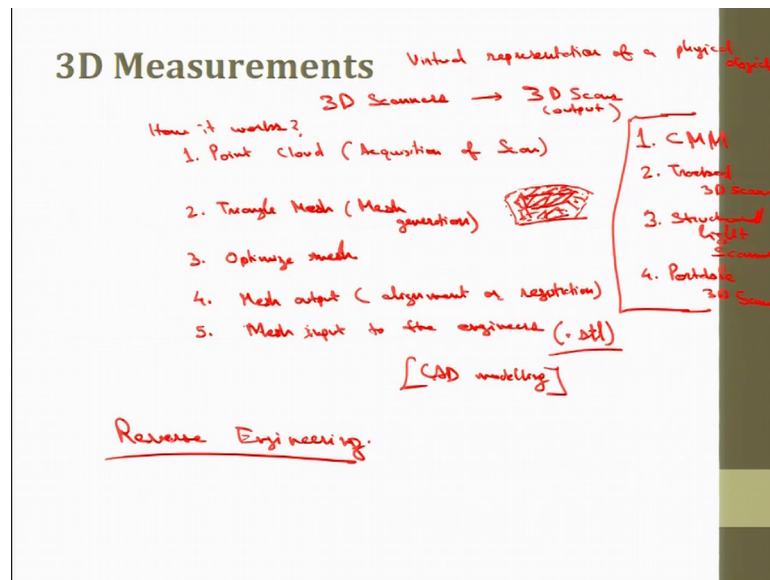 3D Measurements
Virtual representation of a physical object
3D Scanners → 3D Scans
(output)
How it works?
1. Point Cloud (Acquisition of Scan)
2. Triangle Mesh (Mesh generation)
3. Optimize mesh
4. Mesh output (alignment or registration)
5. Mesh input to the engineers (.stl)
[CAD modelling]
Reverse Engineering.
1. CMM
2. Tracked
3D Scan
3. Structured
light
Scann
4. Portable
3D Scan